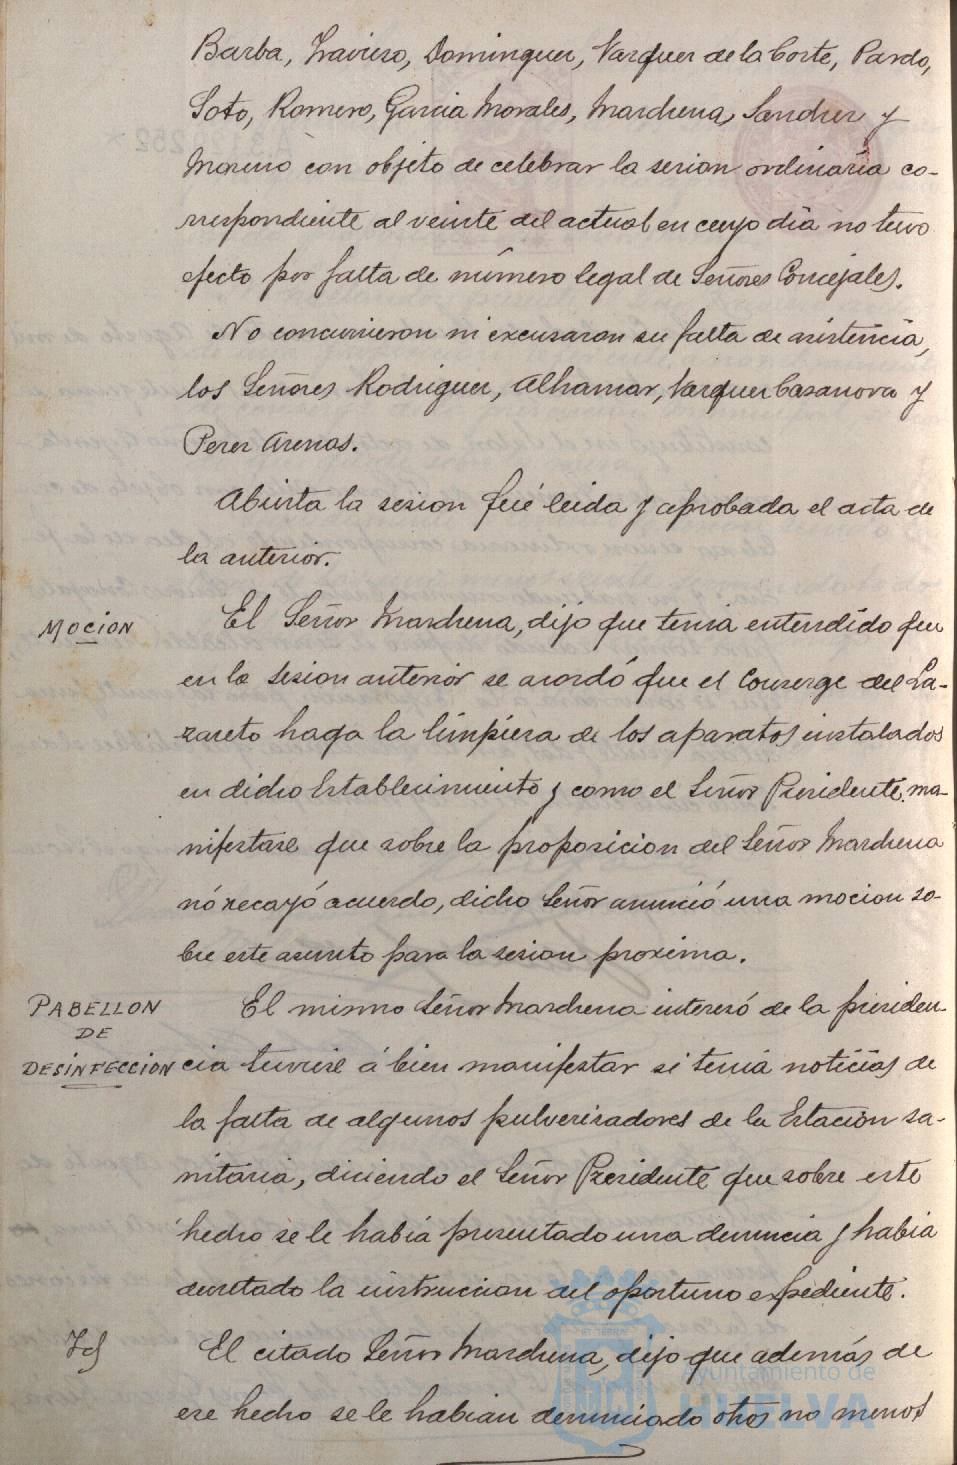 Barba, Traviero, Dominguez, Vazquez de la Corte, Pardo,
Soto, Romero, Garcia Morales, Marchena, Sanchez y
Moreno con objeto de celebrar la sesion ordinaria co-
rrespondiente al veinte del actual en cuyo día no tuvo
efecto por falta de número legal de Señores Concejales.
No concurrieron ni excusaron su falta de asistencia,
los Señores Rodriguez, Alhamar, Vazquez Casanova y
Perez Arenas.
Abierta la sesion fué leida y aprobada el acta de
la anterior.
MOCION
El Señor Marchena, dijo que tenia entendido que
en la sesion anterior se acordó que el Conserge del La-
zareto haga la limpieza de los aparatos instalados
en dicho Establecimiento y como el Señor Presidente ma-
nifestase que sobre la proposicion del Señor Marchena
nó recayó acuerdo, dicho Señor anunció una mocion so-
bre este asunto para la sesion proxima.
PABELLON
DE
DESINFECCION
El mismo Señor Marchena interesó de la presiden-
cia tuviese á bien manifestar si tenia noticias de
la falta de algunos pulverizadores de la Estación sa-
nitaria, diciendo el Señor Presidente que sobre este
hecho se le había presentado una denuncia y habia
decretado la instruccion del oportuno expediente.
Id
El citado Señor Marchena, dijo que además de
ese hecho se le habian denunciado otros no menos
Ayuntamiento de
HUELVA